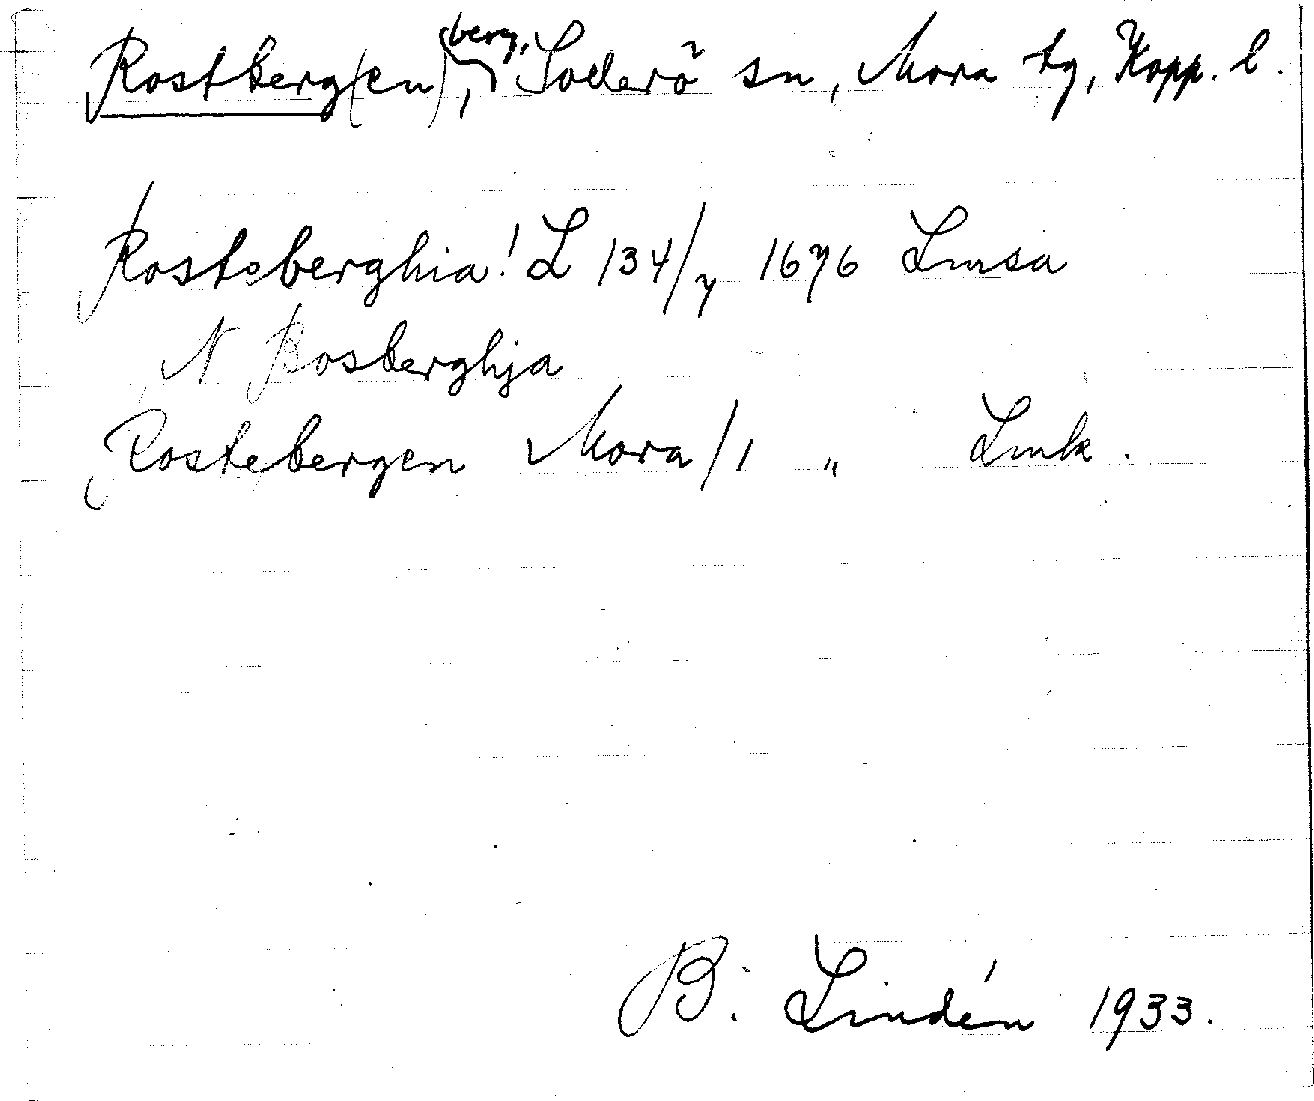 Rostberg(en), berg, Sollerö sn, Mora tg, Kopp. l.
Rosteberghia! L 134/7 1676 Lmsa
N Bosberghja
Rostebergen Mora/1 " Lmk.
B. Lindén 1933.